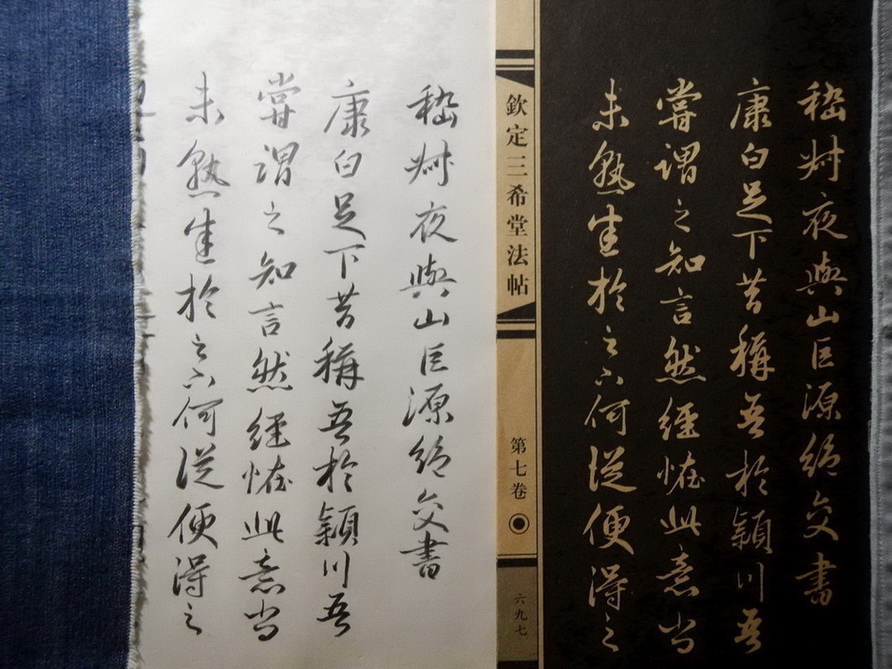 嵇叔夜與山巨源絕交書
康白足下昔稱吾於潁川吾
嘗謂之知言然經怪此意尚
未熟悉於足下何從便得之
欽定三希堂法帖
第七卷
六九七
嵇叔夜與山巨源絕交書
康白足下昔稱吾於潁川吾
嘗謂之知言然經怪此意尚
未熟悉於足下何從便得之